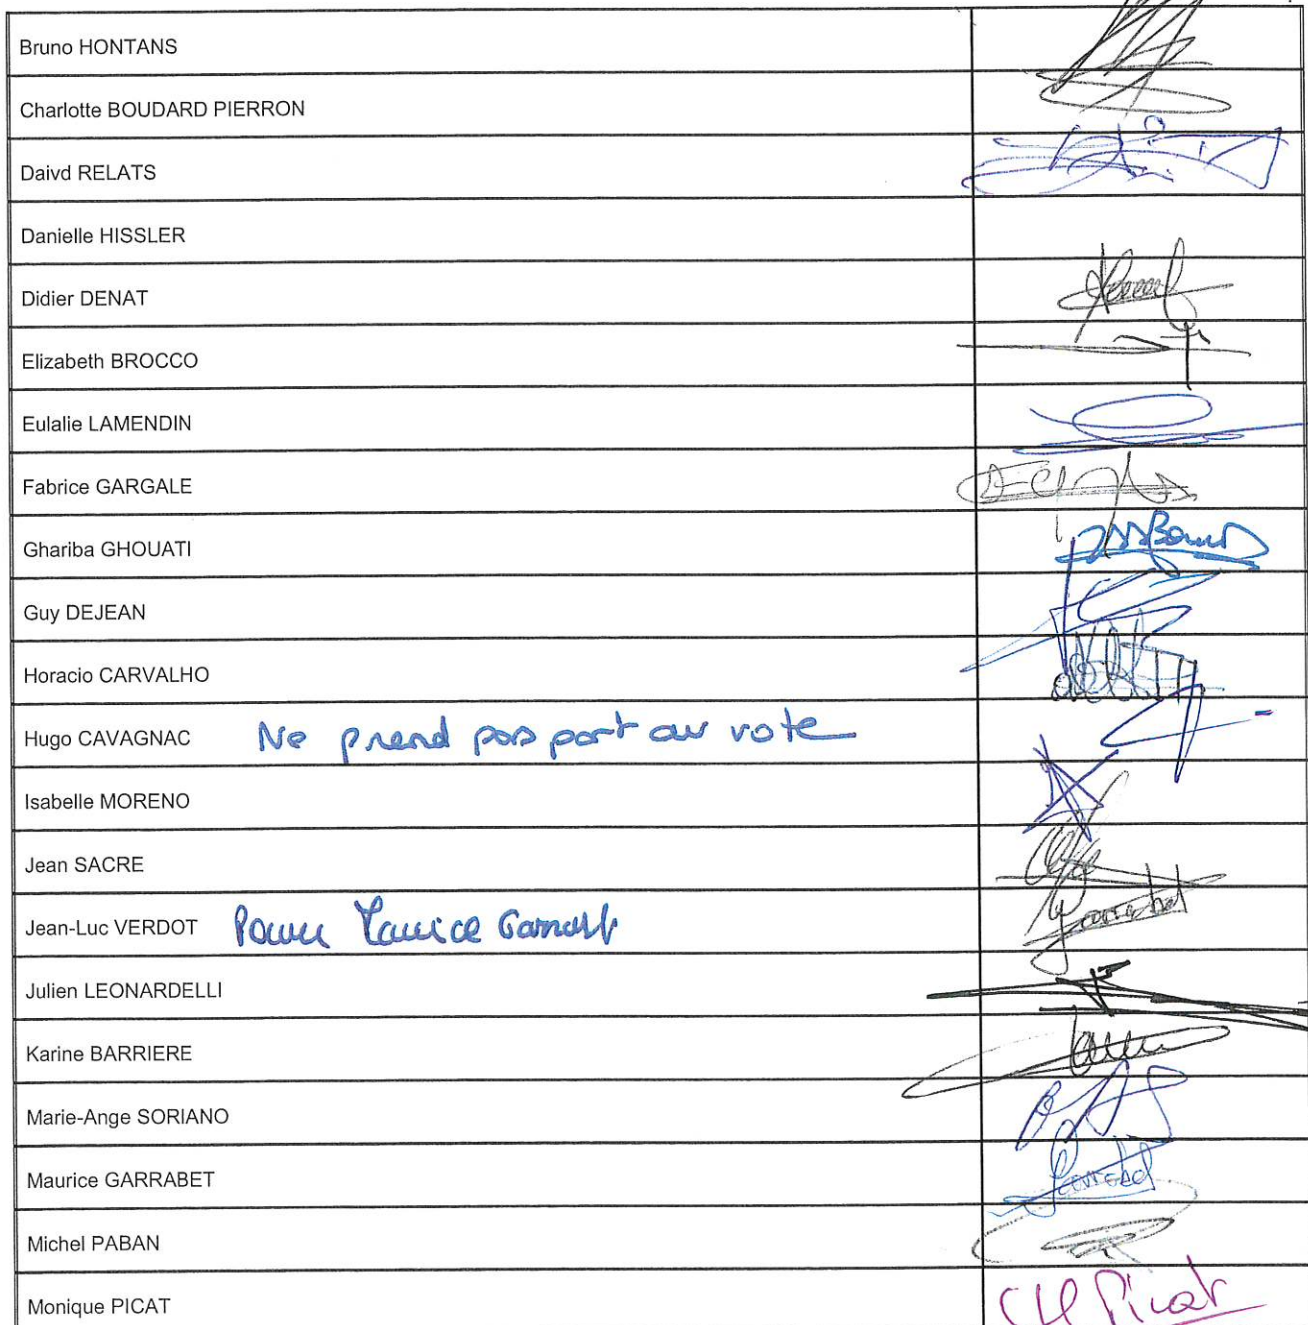 Bruno HONTANS
Charlotte BOUDARD PIERRON
Daivd RELATS
Danielle HISSLER
Didier DENAT
Elizabeth BROCCO
Eulalie LAMENDIN
Fabrice GARGALE
Ghariba GHOUATI
Guy DEJEAN
Horacio CARVALHO
Hugo CAVAGNAC Ne prend pas part au vote
Isabelle MORENO
Jean SACRE
Jean-Luc VERDOT
Julien LEONARDELLI
Karine BARRIERE
Marie-Ange SORIANO
Maurice GARRABET
Michel PABAN
Monique PICAT Picat